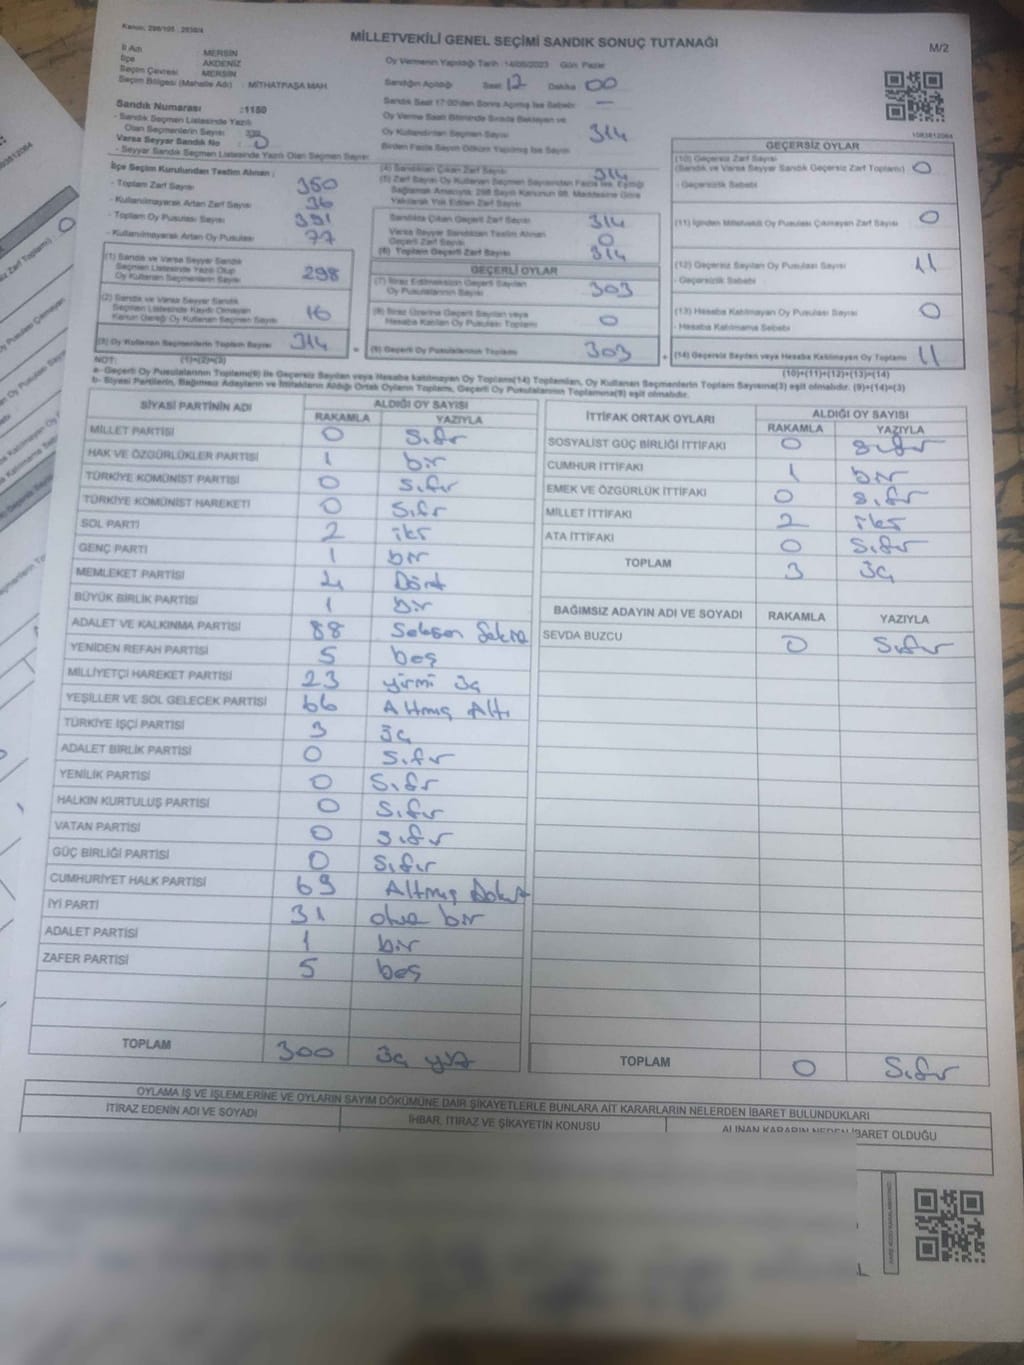 Kanun: 298/105 , 2839/4
MİLLETVEKİLİ GENEL SEÇİMİ SANDIK SONUÇ TUTANAĞI
M/2
İl Adı MERSİN
İlçe AKDENİZ
Seçim Çevresi MERSİN
Seçim Bölgesi (Mahalle Adı) : MİTHATPAŞA MAH.
Oy Vermenin Yapıldığı Tarih : 14/05/2023 Gün: Pazar
Sandığın Açıldığı Saat 12 Dakika 00
Sandık Saat 17:00'den Sonra Açılmış İse Sebebi: —
Oy Verme Saati Bitiminde Sırada Bekleyen ve
Oy Kullandırılan Seçmen Sayısı 314
Birden Fazla Sayım Döküm Yapılmış İse Sayısı
Sandık Numarası :1150
- Sandık Seçmen Listesinde Yazılı
Olan Seçmenlerin Sayısı
Varsa Seyyar Sandık No
- Seyyar Sandık Seçmen Listesinde Yazılı Olan Seçmen Sayısı
İlçe Seçim Kurulundan Teslim Alınan ;
- Toplam Zarf Sayısı 350
- Kullanılmayarak Artan Zarf Sayısı 36
- Toplam Oy Pusulası Sayısı 391
- Kullanılmayarak Artan Oy Pusulası 77
(1) Sandık ve Varsa Seyyar Sandık
Seçmen Listesinde Yazılı Olup
Oy Kullanan Seçmenlerin Sayısı 298
(2) Sandık ve Varsa Seyyar Sandık
Seçmen Listesinde Kayıtlı Olmayan
Kanun Gereği Oy Kullanan Seçmen Sayısı 16
(3) Oy Kullanan Seçmenlerin Toplam Sayısı 314
(4) Sandıktan Çıkan Zarf Sayısı 314
(5) Zarf Sayısı Oy Kullanan Seçmen Sayısından Fazla ise, Eşitliği
Sağlamak Amacıyla 298 Sayılı Kanunun 98. Maddesine Göre
Yakılarak Yok Edilen Zarf Sayısı
Sandıkta Çıkan Geçerli Zarf Sayısı 314
Varsa Seyyar Sandıktan Teslim Alınan
Geçerli Zarf Sayısı 0
(6) Toplam Geçerli Zarf Sayısı 314
GEÇERLİ OYLAR
(7) İtiraz Edilmeksizin Geçerli Sayılan
Oy Pusulalarının Sayısı 303
(8) İtiraz Üzerine Geçerli Sayılan veya
Hesaba Katılan Oy Pusulası Toplamı 0
(9) Geçerli Oy Pusulalarının Toplamı 303
1083812064
GEÇERSİZ OYLAR
(10) Geçersiz Zarf Sayısı
(Sandık ve Varsa Seyyar Sandık Geçersiz Zarf Toplamı) 0
- Geçersizlik Sebebi
(11) İçinden Milletvekili Oy Pusulası Çıkmayan Zarf Sayısı 0
(12) Geçersiz Sayılan Oy Pusulası Sayısı 11
- Geçersizlik Sebebi
(13) Hesaba Katılmayan Oy Pusulası Sayısı 0
- Hesaba Katılmama Sebebi
(14) Geçersiz Sayılan veya Hesaba Katılmayan Oy Toplamı 11
NOT: (1)+(2)=(3)
(10)+(11)+(12)+(13)=(14)
a- Geçerli Oy Pusulalarının Toplamı(9) ile Geçersiz Sayılan veya Hesaba katılmayan Oy Toplamı(14) Toplamları, Oy Kullanan Seçmenlerin Toplam Sayısına(3) eşit olmalıdır. (9)+(14)=(3)
b- Siyasi Partilerin, Bağımsız Adayların ve İttifakların Aldığı Ortak Oyların Toplamı, Geçerli Oy Pusulalarının Toplamına(9) eşit olmalıdır.
SİYASİ PARTİNİN ADI ALDIĞI OY SAYISI
RAKAMLA YAZIYLA
MİLLET PARTİSİ 0 Sıfır
HAK VE ÖZGÜRLÜKLER PARTİSİ 1 bir
TÜRKİYE KOMÜNİST PARTİSİ 0 Sıfır
TÜRKİYE KOMÜNİST HAREKETİ 0 Sıfır
SOL PARTİ 2 iki
GENÇ PARTİ 1 bir
MEMLEKET PARTİSİ 4 Dört
BÜYÜK BİRLİK PARTİSİ 1 bir
ADALET VE KALKINMA PARTİSİ 88 Seksen Sekiz
YENİDEN REFAH PARTİSİ 5 beş
MİLLİYETÇİ HAREKET PARTİSİ 23 yirmi üç
YEŞİLLER VE SOL GELECEK PARTİSİ 66 Altmış Altı
TÜRKİYE İŞÇİ PARTİSİ 3 üç
ADALET BİRLİK PARTİSİ 0 Sıfır
YENİLİK PARTİSİ 0 Sıfır
HALKIN KURTULUŞ PARTİSİ 0 Sıfır
VATAN PARTİSİ 0 Sıfır
GÜÇ BİRLİĞİ PARTİSİ 0 Sıfır
CUMHURİYET HALK PARTİSİ 69 Altmış Dokuz
İYİ PARTİ 31 otuz bir
ADALET PARTİSİ 1 bir
ZAFER PARTİSİ 5 beş
TOPLAM 300 üç yüz
İTTİFAK ORTAK OYLARI ALDIĞI OY SAYISI
RAKAMLA YAZIYLA
SOSYALİST GÜÇ BİRLİĞİ İTTİFAKI 0 sıfır
CUMHUR İTTİFAKI 1 bir
EMEK VE ÖZGÜRLÜK İTTİFAKI 0 sıfır
MİLLET İTTİFAKI 2 iki
ATA İTTİFAKI 0 Sıfır
TOPLAM 3 üç
BAĞIMSIZ ADAYIN ADI VE SOYADI RAKAMLA YAZIYLA
SEVDA BUZCU 0 Sıfır
TOPLAM 0 Sıfır
OYLAMA İŞ VE İŞLEMLERİNE VE OYLARIN SAYIM DÖKÜMÜNE DAİR ŞİKAYETLERLE BUNLARA AİT KARARLARIN NELERDEN İBARET BULUNDUKLARI
İTİRAZ EDENİN ADI VE SOYADI
İHBAR, İTİRAZ VE ŞİKAYETİN KONUSU
ALINAN KARARIN NEDEN İBARET OLDUĞU